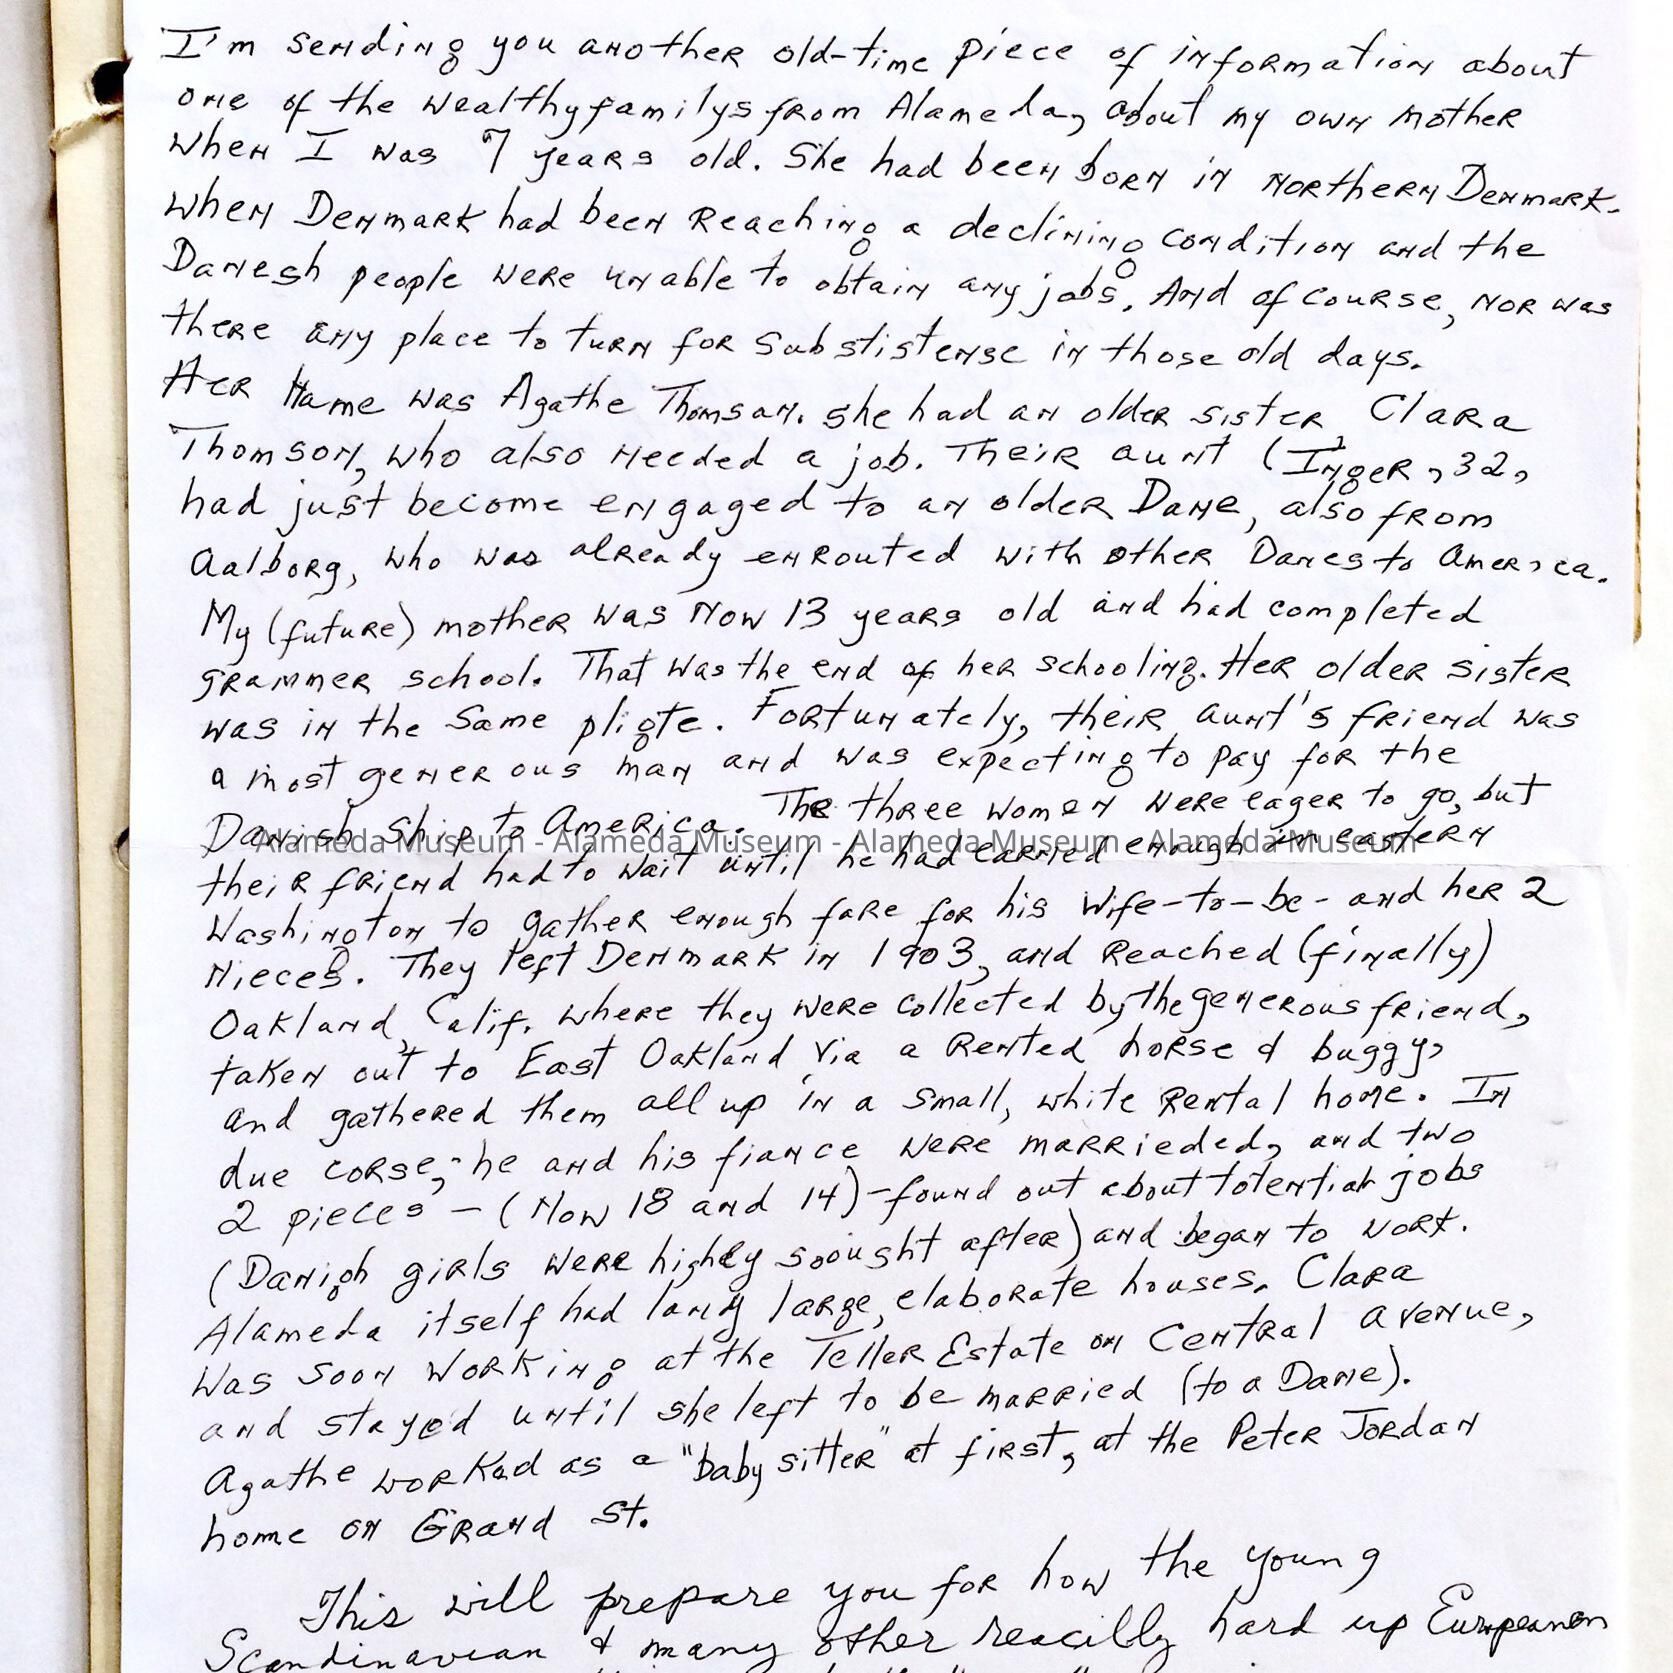 I'm sending you another old-time piece of information about
one of the wealthy familys from Alameda, about my own mother
when I was 7 years old. She had been born in northern Denmark.
when Denmark had been reaching a declining condition and the
Danesh people were unable to obtain any jobs. And of course, nor was
there any place to turn for substistense in those old days.
Her name was Agathe Thomsan. she had an older sister Clara
Thomson, who also needed a job. Their aunt (Inger, 32,
had just become engaged to an older Dane, also from
Aalborg, who was already enrouted with other Danes to America.
My (future) mother was now 13 years old and had completed
grammer school. That was the end of her schooling. Her older sister
was in the same pligte. Fortunately, their aunt's friend was
a most generous man and was expecting to pay for the
Danish ship to America. The three women were eager to go, but
Alameda Museum - Alameda Museum - Alameda Museum - Alameda Museum
their friend had to wait until he had earned enough in eastern
Washington to gather enough fare for his wife-to-be- and her 2
nieces. They left Denmark in 1903, and reached (finally)
Oakland, Calif. where they were collected by the generous friend,
taken out to East Oakland via a rented horse & buggy,
and gathered them all up in a small, white rental home. In
due corse, he and his fiance were marrieded, and two
2 pieces - (now 18 and 14) - found out about totential jobs
(Danish girls were highly soought after) and began to work.
Alameda itself had large, elaborate houses. Clara
was soon working at the Teller Estate on Central avenue,
and stayed until she left to be married (to a Dane).
Agathe worked as a "baby sitter" at first, at the Peter Jordan
home on Grand St.
This will prepare you for how the young
Scandinavian & many other hard up